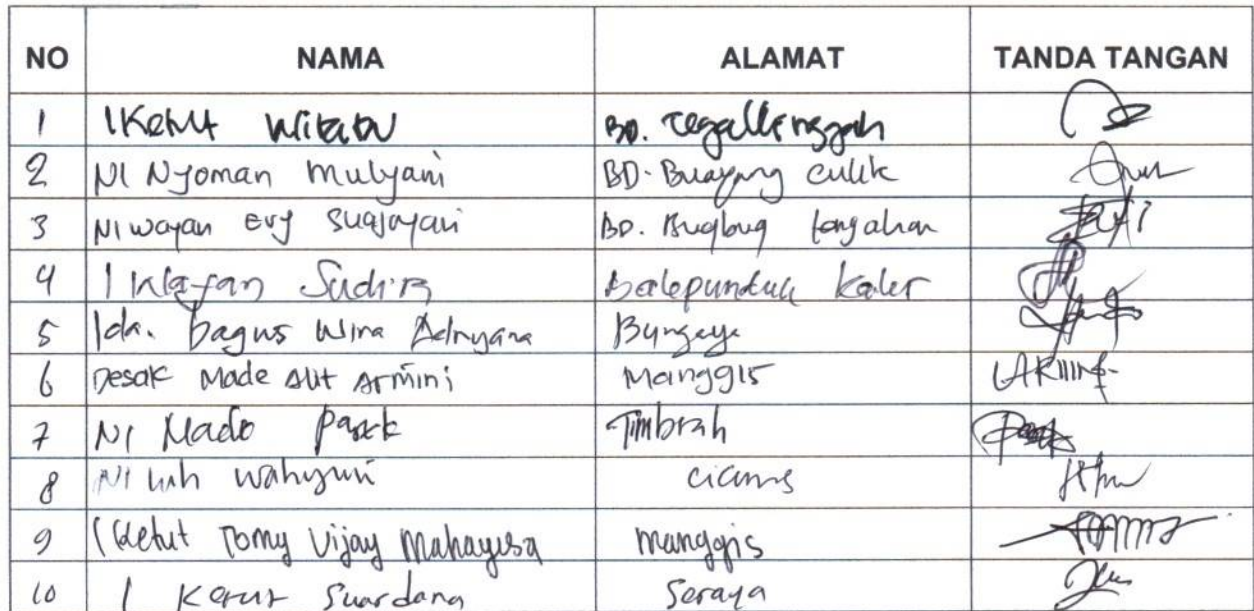 NO NAMA ALAMAT TANDA TANGAN
1 I Ketut BD.
2 NI Nyoman Mulyani BD. Buayang Culik
3 NI Wayan Evy BD. Bugbug
4 I Sudira Kaler
5 Ida. Bagus Wira Adnyana Bungaya
6 Desak Made Alit Armini Manggis
7 NI Made Pasek Timbrah
8 NI Luh Wahyuni
9 I Ketut Tomy Vijay Mahayusa Manggis
10 I Ketut Suardana Seraya